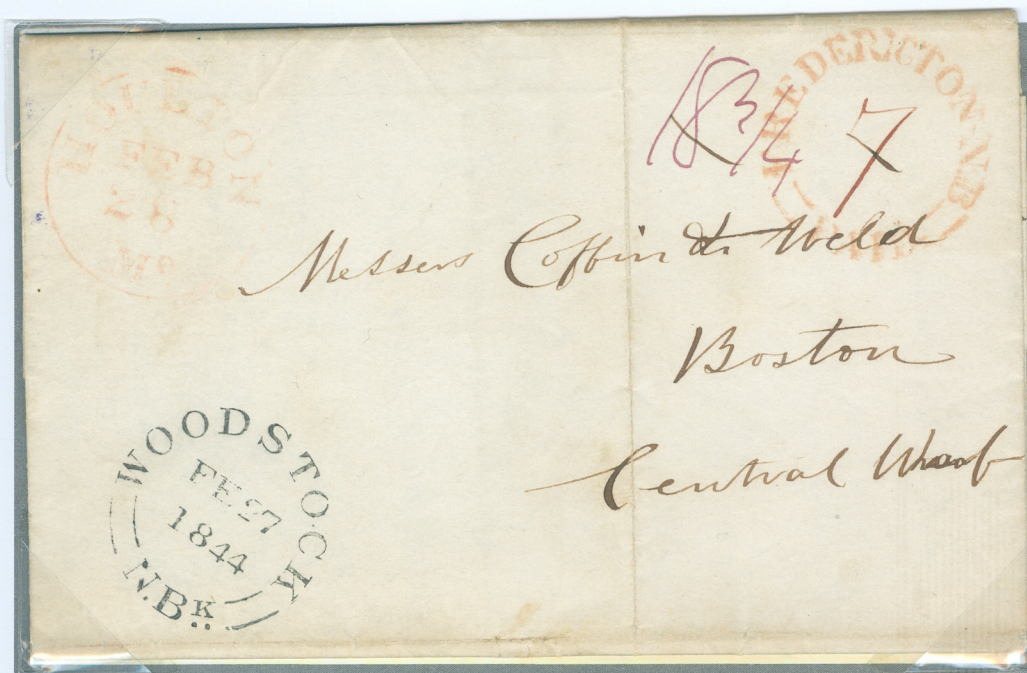 HOULTON
FEB
28
Me
18 3/4
FREDERICTON. N.B
PAID
7
Messers Coffin & Weld
Boston
Central Wharf
WOODSTOCK
FE. 27
1844
N.BK